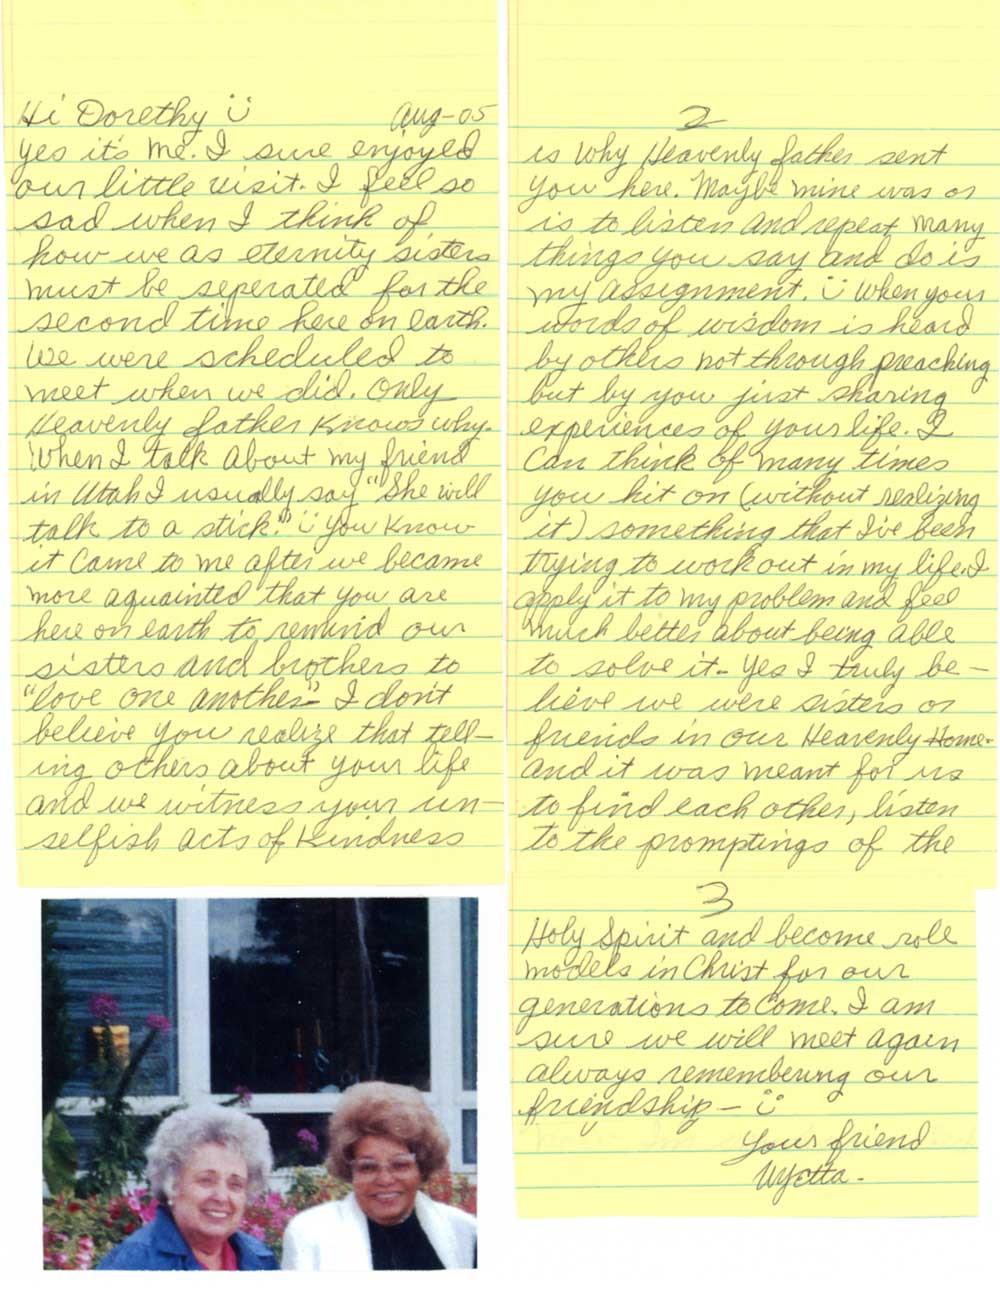 Hi Dorethy Aug-05
yes it's me. I sure enjoyed
our little visit. I feel so
sad when I think of
how we as eternity sisters
must be seperated for the
second time here on earth.
We were scheduled to
meet when we did. Only
Heavenly father Knows why.
When I talk about my friend
in Utah I usually say "She will
talk to a stick." You Know
it Came to me after we became
more aquainted that you are
here on earth to remind our
sisters and brothers to
"love one another" I don't
believe you realize that tell-
ing others about your life
and we witness your un-
selfish acts of Kindness
2
is why Heavenly father sent
you here. Maybe mine was or
is to listen and repeat many
things you say and do is
my assignment. When your
words of wisdom is heard
by others not through preaching
but by you just sharing
experiences of your life. I
Can think of many times
you hit on (without realizing
it) something that I've been
trying to work out in my life. I
apply it to my problem and feel
much better about being able
to solve it- Yes I truly be-
lieve we were sisters or
friends in our Heavenly Home-
and it was meant for us
to find each other, listen
to the promptings of the
3
Holy Spirit and become role
models in Christ for our
generations to Come. I am
sure we will meet again
always remembering our
friendship-
Your friend
Wyetta-